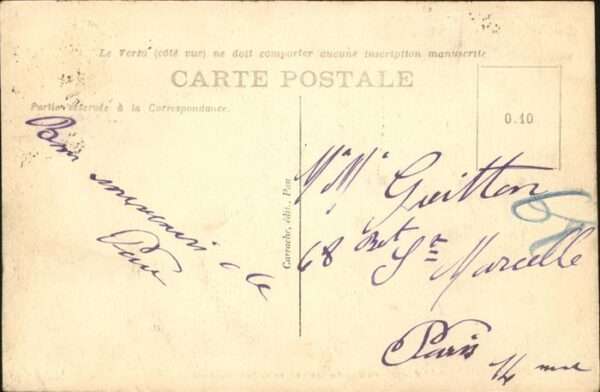 Le Verso (côté vue) ne doit comporter aucune inscription manuscrite
CARTE POSTALE
Partie réservée à la Correspondance.
0.10
Bon souvenir de
Pau
Carrache, édit., Pau
Mr Me Guitton
68 Bet St Marcelle
Paris
14 me